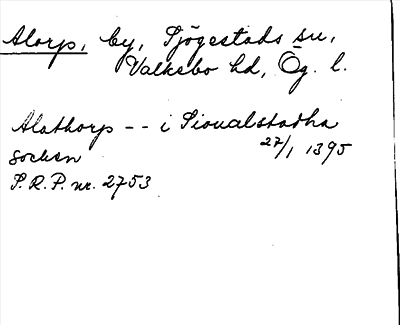 Alorp, by, Sjögestads sn,
Valkebo hd, Ög. l.
Alathorp -- i Sioualstadha
socken 27/1 1395
S.R.P. nr. 2753